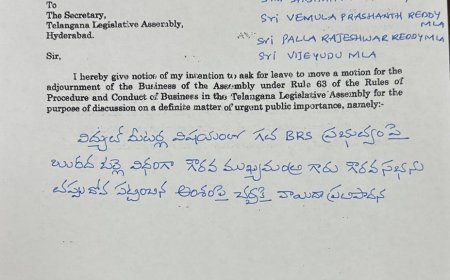 To
The Secretary,
Telangana Legislative Assembly,
Hyderabad.
Sri VEMULA PRASHANTH REDDY
MLA
Sri PALLA RAJESHWAR REDDY MLA
Sri VIJEYUDU MLA
Sir,
I hereby give notice of my intention to ask for leave to move a motion for the
adjournment of the Business of the Assembly under Rule 63 of the Rules of
Procedure and Conduct of Business in the Telangana Legislative Assembly for the
purpose of discussion on a definite matter of urgent public importance, namely:-
విద్యుత్ మీటర్ల విషయంలో గత BRS ప్రభుత్వంపై
బురద చల్లే విధంగా గౌరవ ముఖ్యమంత్రి గారు గౌరవ సభను
తప్పుదోవ పట్టించిన అంశంపై చర్చకై వాయిదా ప్రతిపాదన